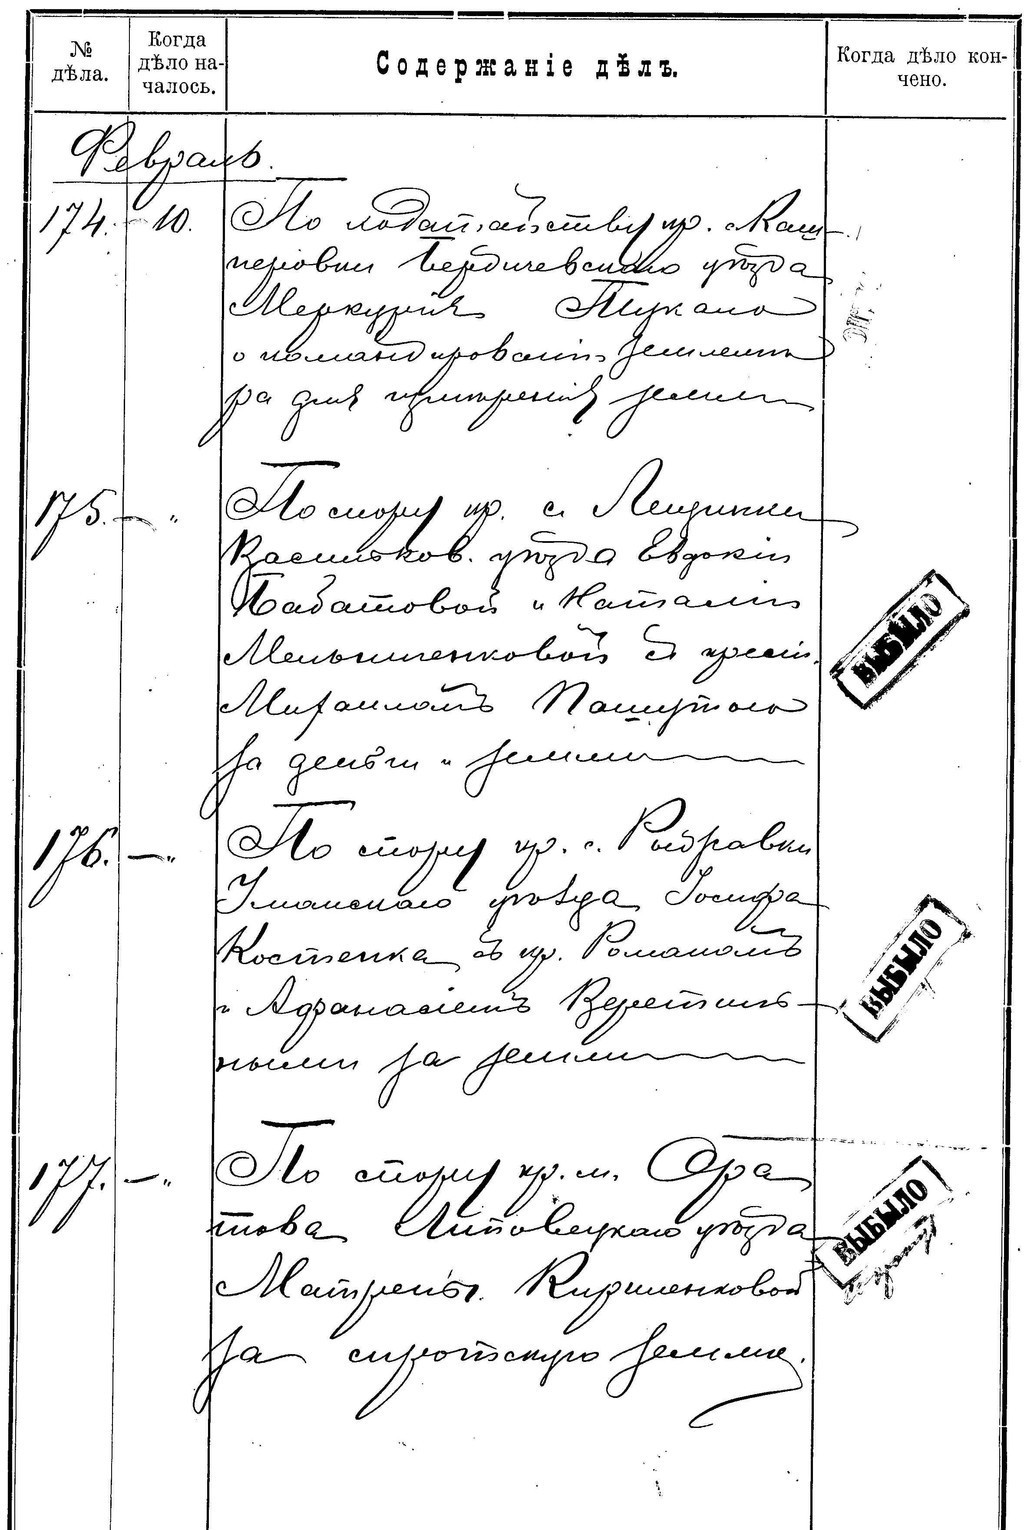 № дѣла.
Когда дѣло на-
чалось.
Содержаніе дѣлъ.
Когда дѣло кон-
чено.
Февраль.
174. — 10. По ходатайству кр. с. Каш-
перовки Бердичевскаго уѣзда
Меркурія Пукало
о командированіи землемѣ
ра для измѣренія земли
175. — „ По спору кр. с. Лещинки
Васильков. уѣзда Евдокіи
Бабатовой и Наталіи
Мельниченковой съ крест.
Михаиломъ Пашутою
за деньги и землю
ВЫБЫЛО
176. — „ По спору кр. с. Рыбравки
Уманскаго уѣзда Іосифа
Костенка съ кр. Романомъ
и Афанасіемъ Веретиль-
ными за землю
ВЫБЫЛО
177. — „ По спору кр. м. Ора
това Липовецкаго уѣзда
Матрены Кириленковой
за сиротскую землю.
ВЫБЫЛО